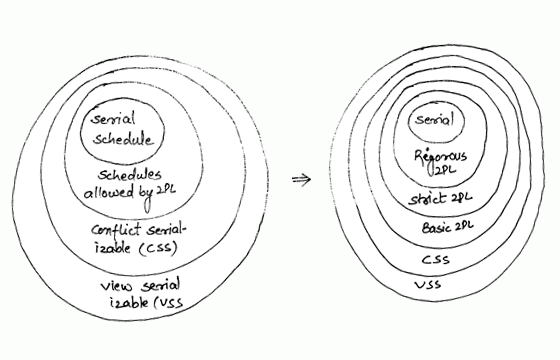 serial
schedule
schedules
allowed by 2PL
Conflict serial-
izable (CSS)
view serial
izable (VSS
⇒
serial
Rigorous
2PL
strict 2PL
Basic 2PL
CSS
VSS